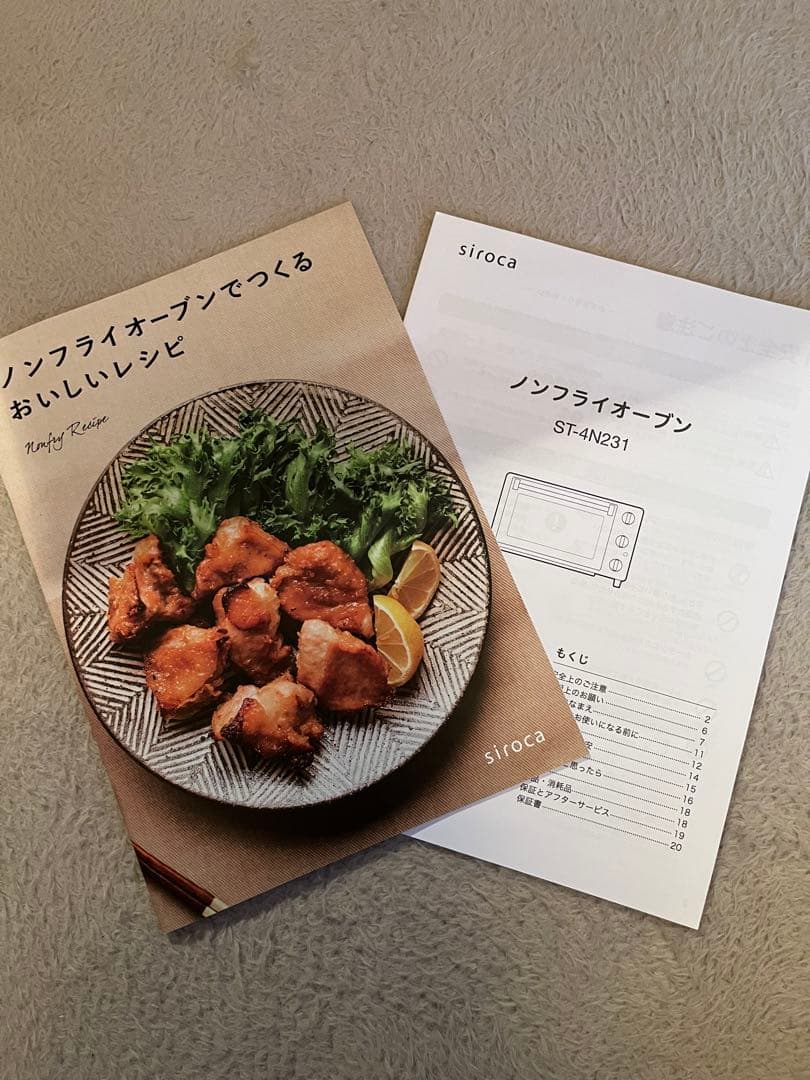 ノンフライオーブンでつくる
おいしいレシピ
Nonfry Recipe
siroca
siroca
ノンフライオーブン
ST-4N231
もくじ
全上のご注意 2
上のお願い 6
なまえ 7
お使いになる前に 11
12
14
思ったら 15
16
品・消耗品 18
保証とアフターサービス 18
保証書 19
20